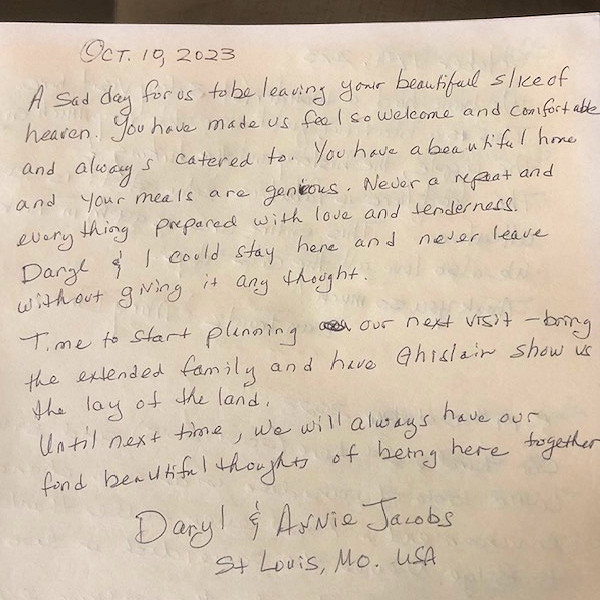 Oct. 10, 2023
A sad day for us to be leaving your beautiful slice of
heaven. You have made us feel so welcome and comfortable
and always catered to. You have a beautiful home
and your meals are genious. Never a repeat and
every thing prepared with love and tenderness.
Daryl & I could stay here and never leave
without giving it any thought.
Time to start planning our next visit - bring
the extended family and have Ghislain show us
the lay of the land.
Until next time, we will always have our
fond beautiful thoughts of being here together
Daryl & Annie Jacobs
St Louis, Mo. USA